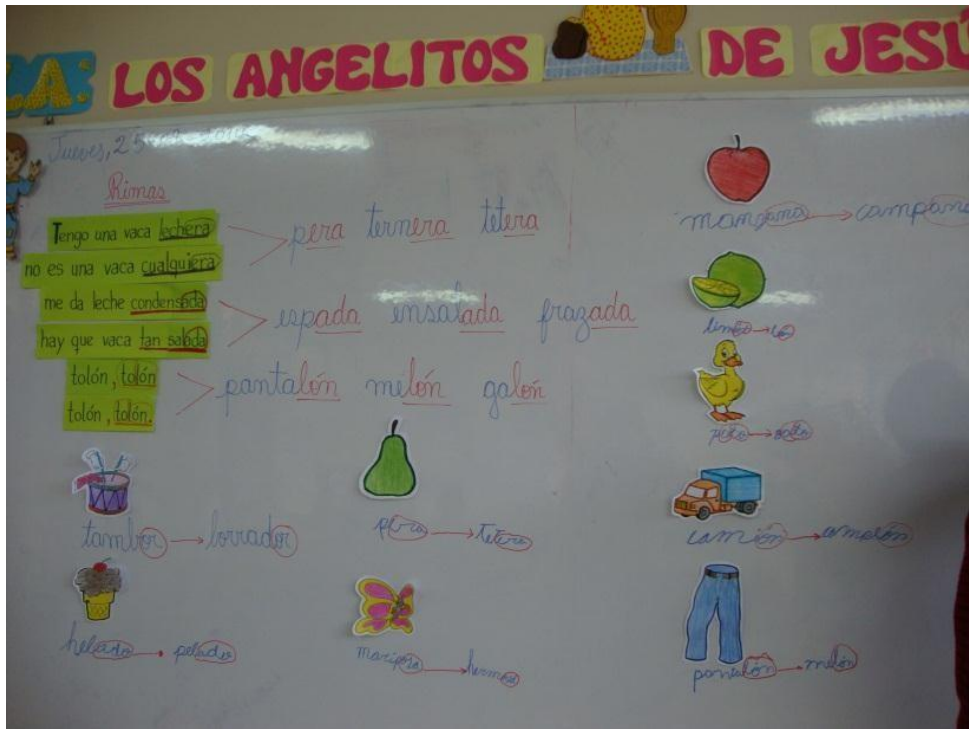 LOS ANGELITOS DE JESÚ
Jueves, 25
Rimas
Tengo una vaca lechera
no es una vaca cualquiera
me da leche condensada
hay que vaca tan salada
tolón, tolón
tolón, tolón.
pera ternera tetera
espada ensalada frazada
pantalón melón galón
manzana → campana
limón →
pato →
camión →
pantalón → melón
tambor → borrador
pera → tetera
helado → pelado
mariposa → hermosa